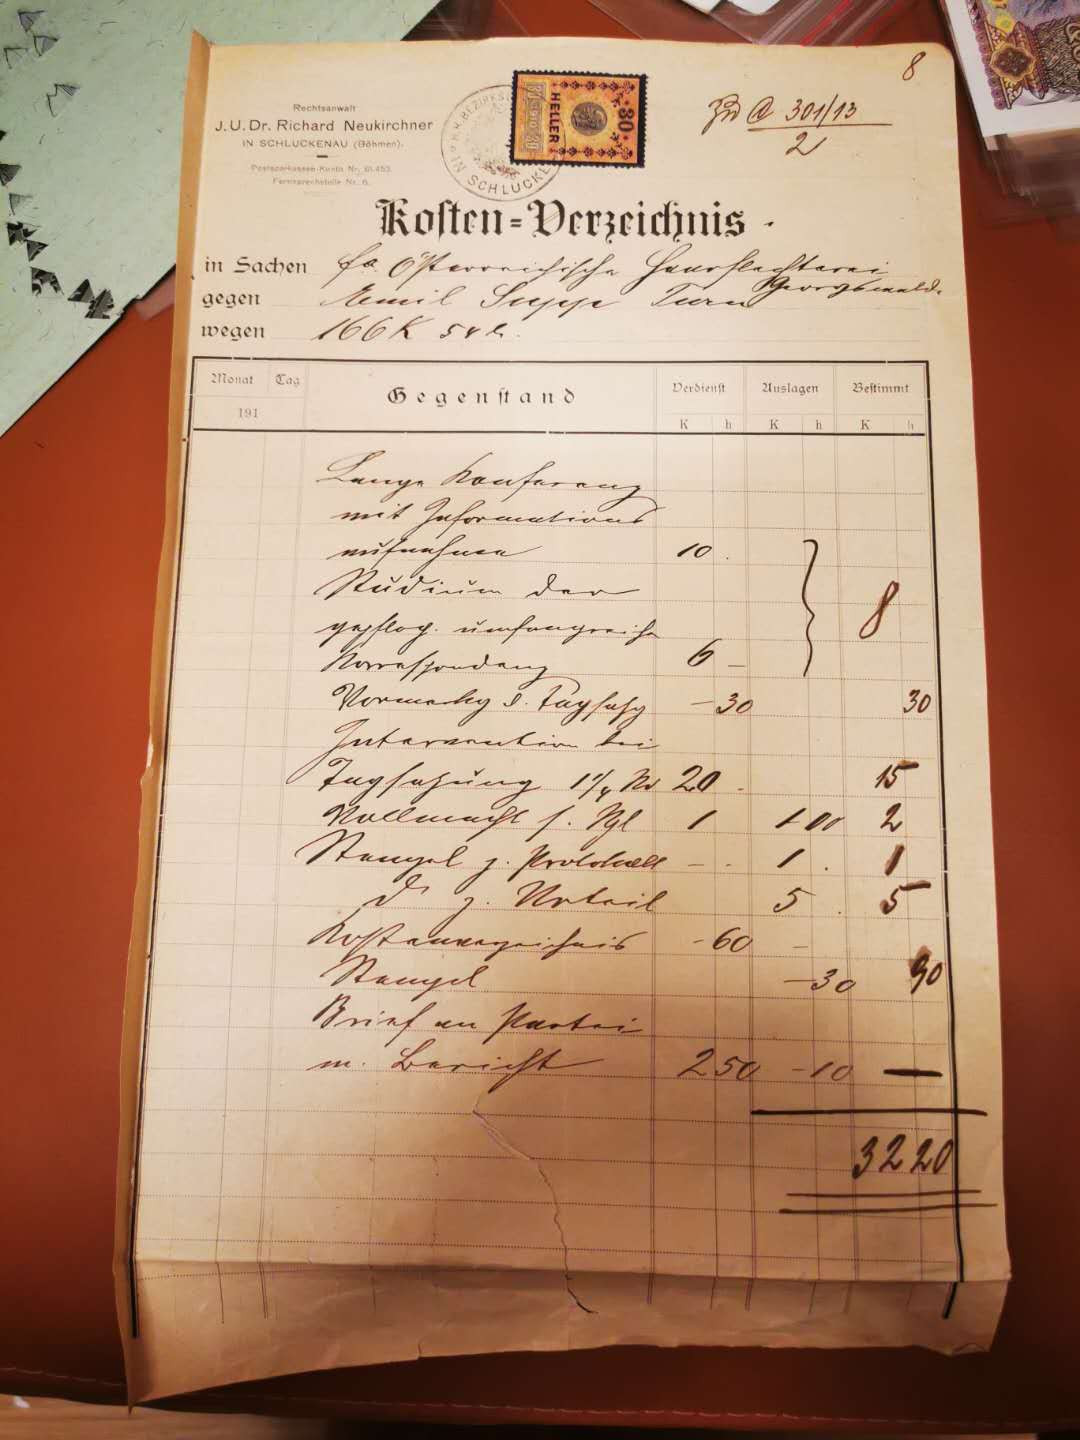 8
Rechtsanwalt
J.U.Dr. Richard Neukirchner
IN SCHLUCKENAU (Böhmen).
Postsparkassen-Konto Nr. 61.453.
Fernsprechstelle Nr. 6.
K.K. BEZIRKS
IN SCHLUCKE
30
HELLER
301/13
2
Kosten=Verzeichnis
in Sachen fa Österreichische Haarflechterei
Georgswalde
gegen Emil Suppe Turn
wegen 166 K 54 h.
Monat Tag Gegenstand Verdienst Auslagen Bestimmt
191 K h K h K h
Lange Konferenz
mit Informations
aufnahme 10 .
Studium der 8
gepflog. umfangreiche
Korrespondenz 6 –
Vormerkg d. Tagsatzg – 30 30
Intervention bei
Tagsatzung 20 . 15
Vollmacht 1 1 00 2
Stempel z. Protokoll – . 1 . 1
dto z. Urteil 5 . 5
Kostenverzeichnis – 60 –
Stempel – 30 90
Brief an Partei
m. Bericht 2 50 – 10 —
32 20